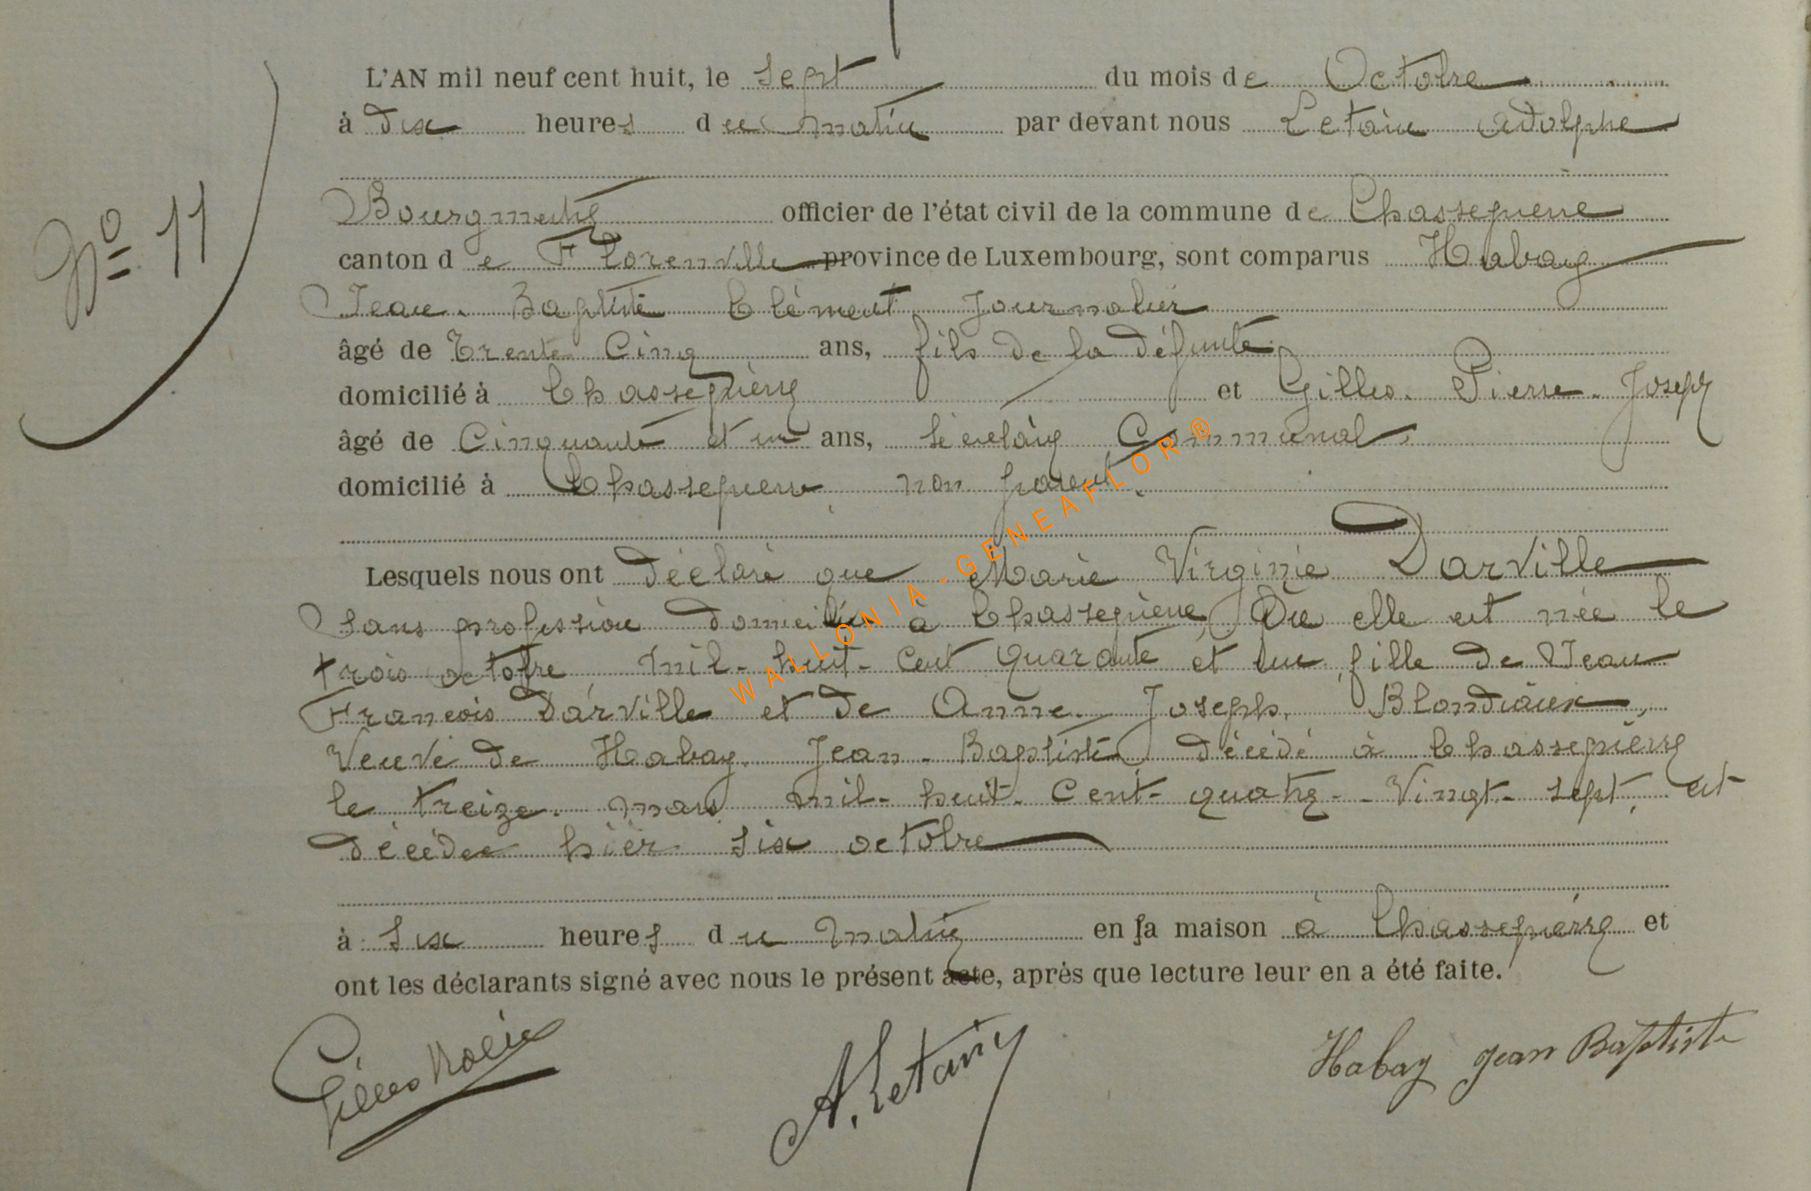 Nº 11
L'AN mil neuf cent huit, le sept du mois de Octobre
à dix heures du matin par devant nous Letain Adolphe
Bourgmestre officier de l'état civil de la commune de Chassepierre
canton de Florenville province de Luxembourg, sont comparus Habay
Jean. Baptiste Clément Journalier
âgé de Trente Cinq ans, fils de la défunte
domicilié à Chassepierre et Gilles. Pierre. Joseph
âgé de Cinquante et un ans, Secrétaire Communal
domicilié à Chassepierre non parent.
Lesquels nous ont déclaré que Marie Virginie Darville
Sans profession domiciliée à Chassepierre, Que elle est née le
trois octobre mil-huit-cent quarante et un fille de Jean
François Darville et de Anne. Joseph. Blondiaux,
Veuve de Habay. Jean. Baptiste décédé à Chassepierre
le treize. mars mil-huit-Cent-quatre-Vingt-sept, est
décédée hier six octobre
à six heures du matin en sa maison à Chassepierre et
ont les déclarants signé avec nous le présent acte, après que lecture leur en a été faite.
Gilles A. Letain Habay Jean Baptiste
WALLONIA-GENEAFLOR®